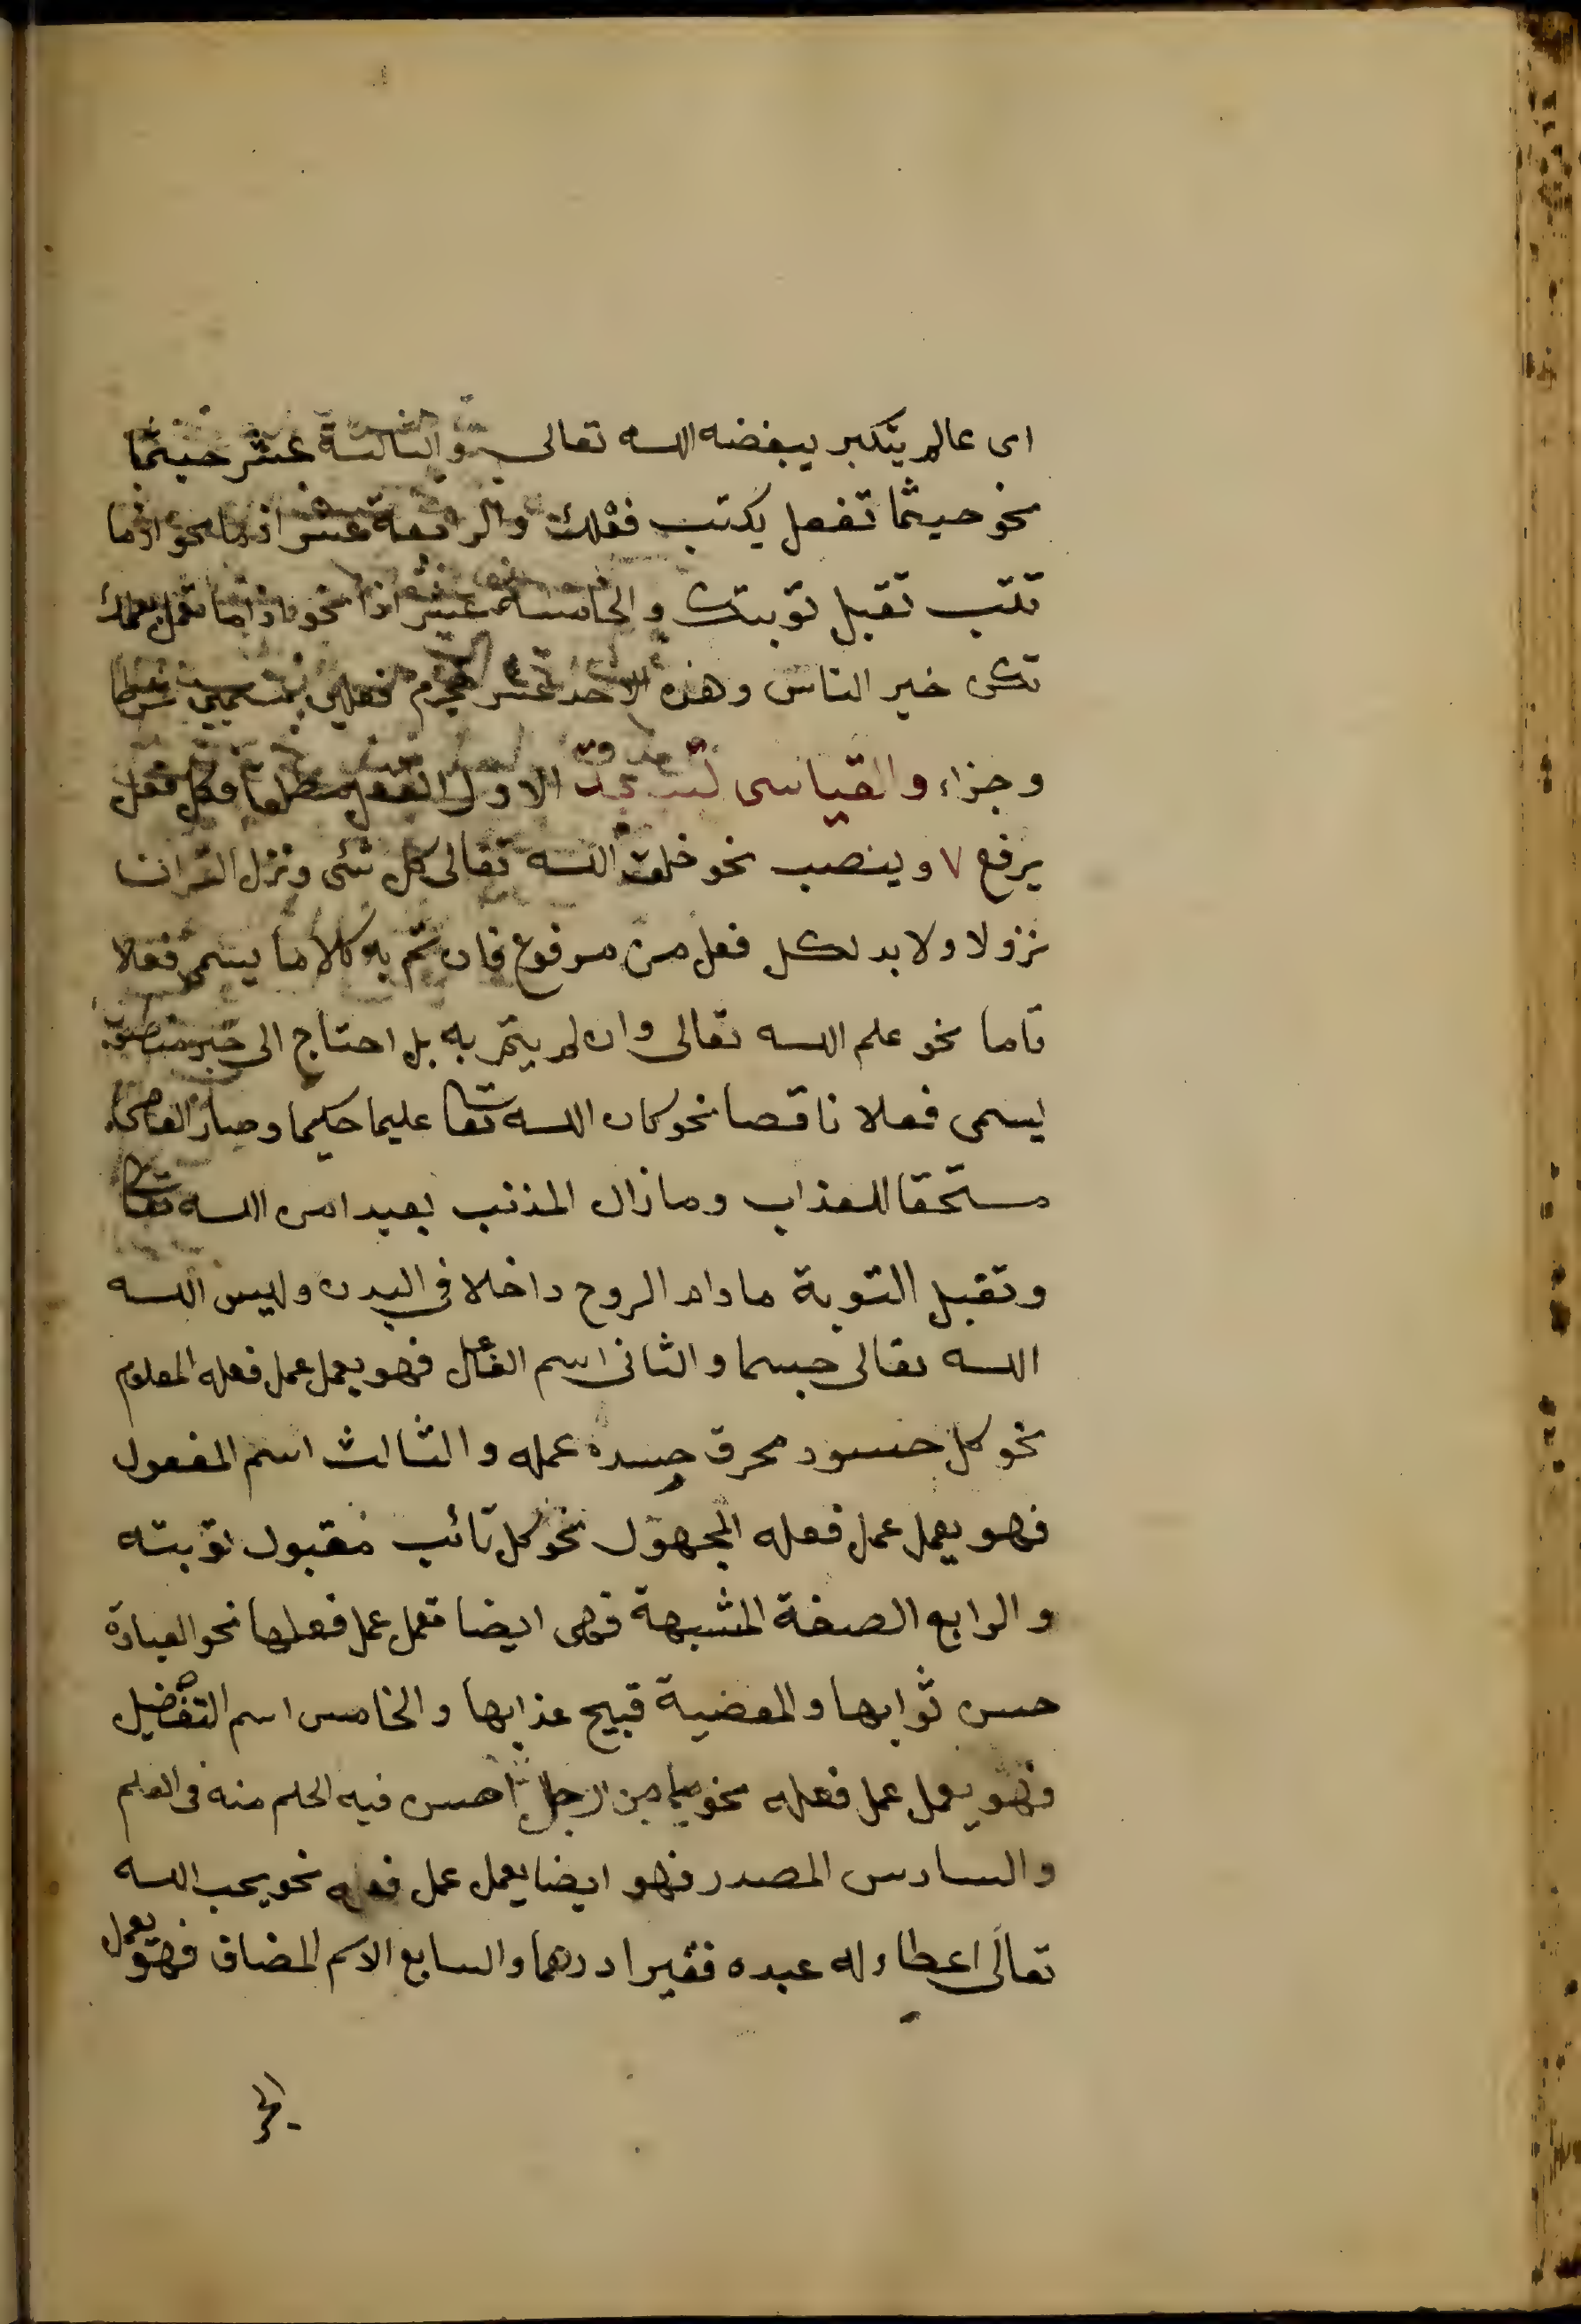 اى عالم يتكبر يبغضه الله تعالى والثالثة عشر حيثما
نحو حيثما تفعل يكتب فعلك والرابعة عشر اذما نحو اذما
تتب تقبل توبتك والخامسة عشر اذاما نحو اذاما تعمل بعلمك
تكن خير الناس وهذه الاحد عشر تجزم فعلين يسميين شرطا
وجزاء والقياسى تسعة الاول الفعل مطلقا فكل فعل
يرفع ٧ وينصب نحو خلق الله تعالى كل شئ ونزل القران
نزولا ولا بد لكل فعل من مرفوع فان تم به كلاما يسمى فعلا
تاما نحو علم الله تعالى وان لم يتم به بل احتاج الى خبر منصوب
يسمى فعلا ناقصا نحو كان الله تعا عليما حكيما وصار العاصى
مستحقا للعذاب ومازال المذنب بعيدا من الله تعا
وتقبل التوبة مادام الروح داخلا فى البدن وليس الله
الله تعالى جسما والثانى اسم الفاعل فهو يعمل عمل فعله المعلوم
نحو كل حسود محرق حسده عمله والثالث اسم المفعول
فهو يعمل عمل فعله المجهول نحو كل تائب مقبول توبته
والرابع الصفة المشبهة فهى ايضا تعمل عمل فعلها نحو العبادة
حسن ثوابها والمعصية قبيح عذابها والخامس اسم التفضيل
فهو يعمل عمل فعله نحو ما من رجل احسن فيه الحلم منه فى العلم
والسادس المصدر فهو ايضا يعمل عمل فعله نحو يحب الله
تعالى اعطاء له عبده فقيرا درهما والسابع الاسم المضاف فهو يعمل
الجر